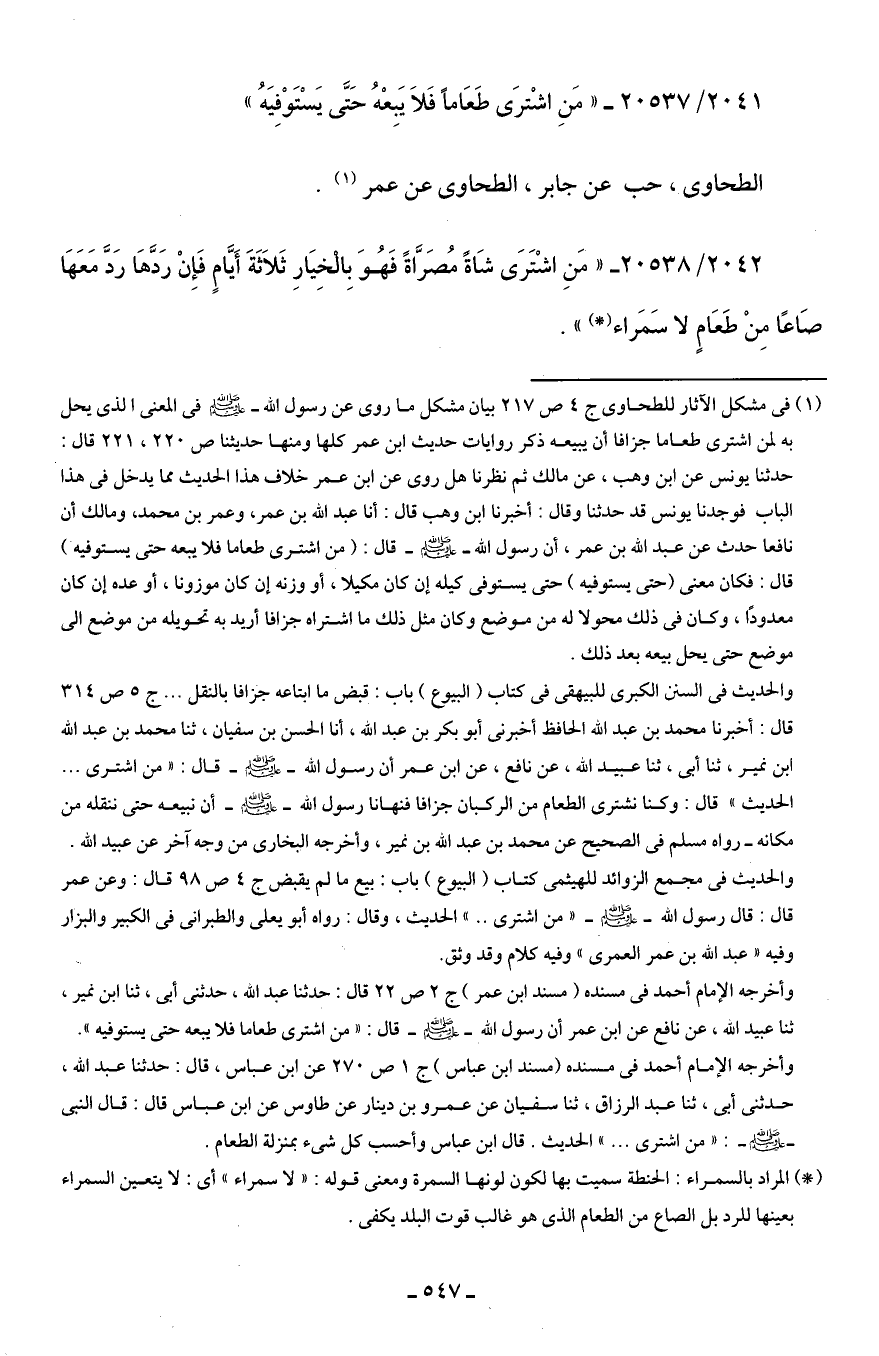 ٢٠٤١/ ٢٠٥٣٧ ـ « مَنِ اشْتَرَى طَعَاماً فَلاَ يَبِعْهُ حَتَّى يَسْتَوْفِيَهُ »
الطحاوى ، حب عن جابر ، الطحاوى عن عمر (١) .
٢٠٤٢/ ٢٠٥٣٨ـ « مَنِ اشْتَرَى شَاةً مُصَرَّاةً فَهُـوَ بِالْخِيَارِ ثَلاَثَةَ أَيَّامٍ فَإِنْ رَدَّهَا رَدَّ مَعَهَا
صَاعًا مِنْ طَعَامٍ لا سَمَراء(*) » .
(١) فى مشكل الآثار للطحـاوى ج ٤ ص ٢١٧ بيان مشكل مـا روى عن رسول الله ـ ﷺ فى المعنى الذى يحل
به لمن اشترى طعـاما جزافا أن يبيعـه ذكر روايات حديث ابن عمر كلها ومنهـا حديثنا ص ٢٢٠ ، ٢٢١ قال :
حدثنا يونس عن ابن وهب ، عن مالك ثم نظرنا هل روى عن ابن عـمر خلاف هذا الحديث مما يدخل فى هذا
الباب فوجدنا يونس قد حدثنا وقال : أخبرنا ابن وهب قال : أنا عبد الله بن عمر، وعمر بن محمد، ومالك أن
نافعا حدث عن عـبد الله بن عمر ، أن رسول الله ـ ﷺ ـ قال : ( من اشتـرى طعاما فلا يبعه حتى يستوفيه )
قال : فكان معنى (حتى يستوفيه ) حتى يسـتوفى كيله إن كان مكيلا ، أو وزنه إن كان موزونا ، أو عده إن كان
معدودًا ، وكـان فى ذلك محولا له من مـوضع وكان مثل ذلك ما اشتـراه جزافا أريد به تحـويله من موضع الى
موضع حتى يحل بيعه بعد ذلك .
والحديث فى السنن الكبرى للبيهقى فى كتاب ( البيوع ) باب : قبض ما ابتاعه جزافا بالنقل ... ج ٥ ص ٣١٤
قال : أخبرنا محمد بن عبد الله الحافظ أخبرنى أبو بكر بن عبد الله ، أنا الحسن بن سفيان ، ثنا محمد بن عبد الله
ابن نميـر ، ثنا أبى ، ثنا عـبيـد الله ، عن نافع ، عن ابن عـمر أن رسـول الله ـ ﷺ ـ قـال : « من اشتـرى ...
الحديث » قال : وكـنا نشترى الطعام من الركـبان جزافا فنهـانا رسول الله ـ ﷺ ـ أن نبيعـه حتى ننقله من
مكانه ـ رواه مسلم فى الصحيح عن محمد بن عبد الله بن نمير ، وأخرجه البخارى من وجه آخر عن عبيد الله .
والحديث فى مجـمع الزوائد للهيثمى كتـاب ( البيوع ) باب : بيع ما لم يقبض ج ٤ ص ٩٨ قـال : وعن عمر
قال : قال رسول الله ـ ﷺ ـ « من اشترى .. » الحديث ، وقال : رواه أبو يعلى والطبرانى فى الكبير والبزار
وفيه « عبد الله بن عمر العمرى » وفيه كلام وقد وثق.
وأخرجه الإمام أحمد فى مسنده ( مسند ابن عمر ) ج ٢ ص ٢٢ قال : حدثنا عبد الله ، حدثنى أبى ، ثنا ابن نمير ،
ثنا عبيد الله ، عن نافع عن ابن عمر أن رسول الله ـ ﷺ ـ قال : « من اشترى طعاما فلا يبعه حتى يستوفيه ».
وأخرجه الإمـام أحمد فى مـسنده (مسند ابن عباس ) ج ١ ص ٢٧٠ عن ابن عـباس ، قال : حدثنا عـبد الله ،
حـدثنى أبى ، ثنا عبـد الرزاق ، ثنا سـفيان عن عـمرو بن دينار عن طاوس عن ابن عبـاس قال : قـال النبى
ـ ﷺ ـ : « من اشترى ... » الحديث . قال ابن عباس وأحسب كل شىء بمنزلة الطعام .
(*) المراد بالسمـراء : الحنطة سميت بها لكون لونهـا السمرة ومعنى قـوله : « لا سمراء » أى : لا يتعـين السمراء
بعينها للرد بل الصاع من الطعام الذى هو غالب قوت البلد يكفى .
ـ ٥٤٧ ـ